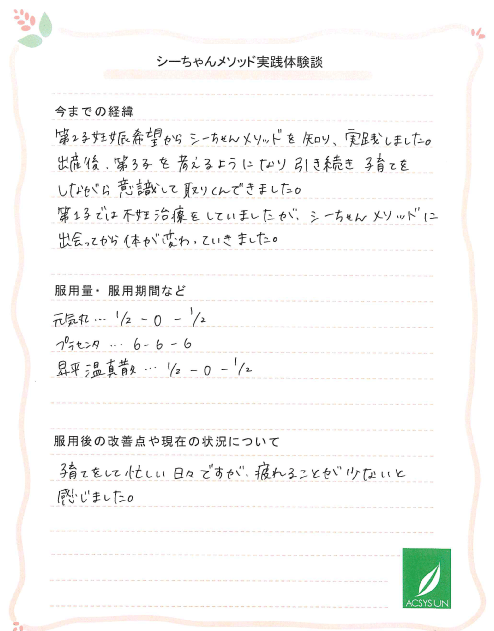 シーちゃんメソッド実践体験談
今までの経緯
第2子妊娠希望からシーちゃんメソッドを知り、実践しました。
出産後、第3子を考えるようになり引き続き子育てを
しながら意識して取りくんできました。
第1子では不妊治療をしていましたが、シーちゃんメソッドに
出会ってから体が変わっていきました。
服用量・服用期間など
元気丸…1/2 - 0 - 1/2
プラセンタ…6-6-6
昇平温真散…1/2 - 0 - 1/2
服用後の改善点や現在の状況について
子育てをして忙しい日々ですが、疲れることが少ないと
感じました。
ACSYSUN